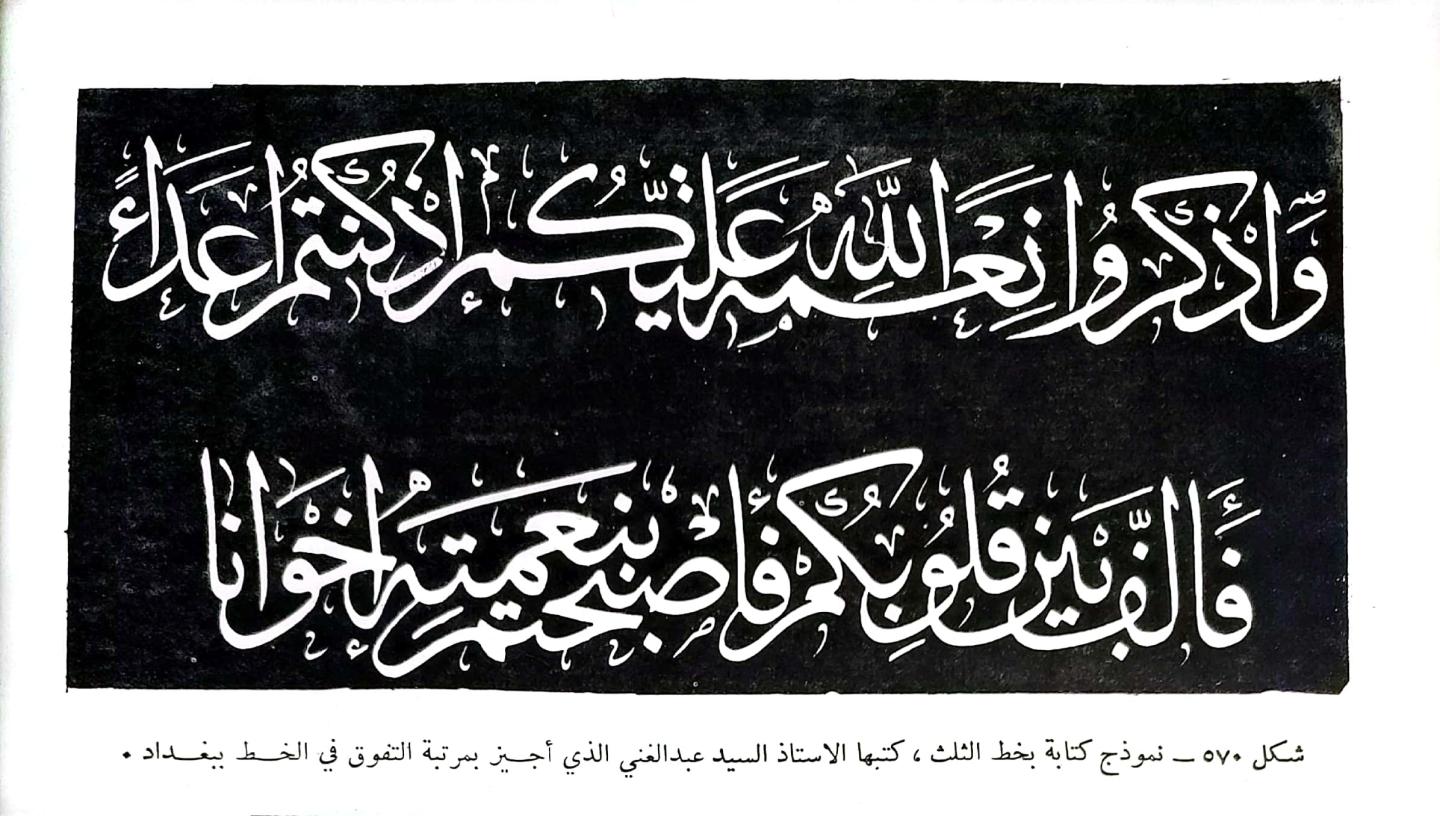 وَاذْكُرُوا نِعْمَةَ اللَّهِ عَلَيْكُمْ إِذْ كُنْتُمْ أَعْدَاءً
فَأَلَّفَ بَيْنَ قُلُوبِكُمْ فَأَصْبَحْتُمْ بِنِعْمَتِهِ إِخْوَانًا
شكل ٥٧٠ — نموذج كتابة بخط الثلث ، كتبها الاستاذ السيد عبدالغني الذي أجيز بمرتبة التفوق في الخط ببغداد ٠